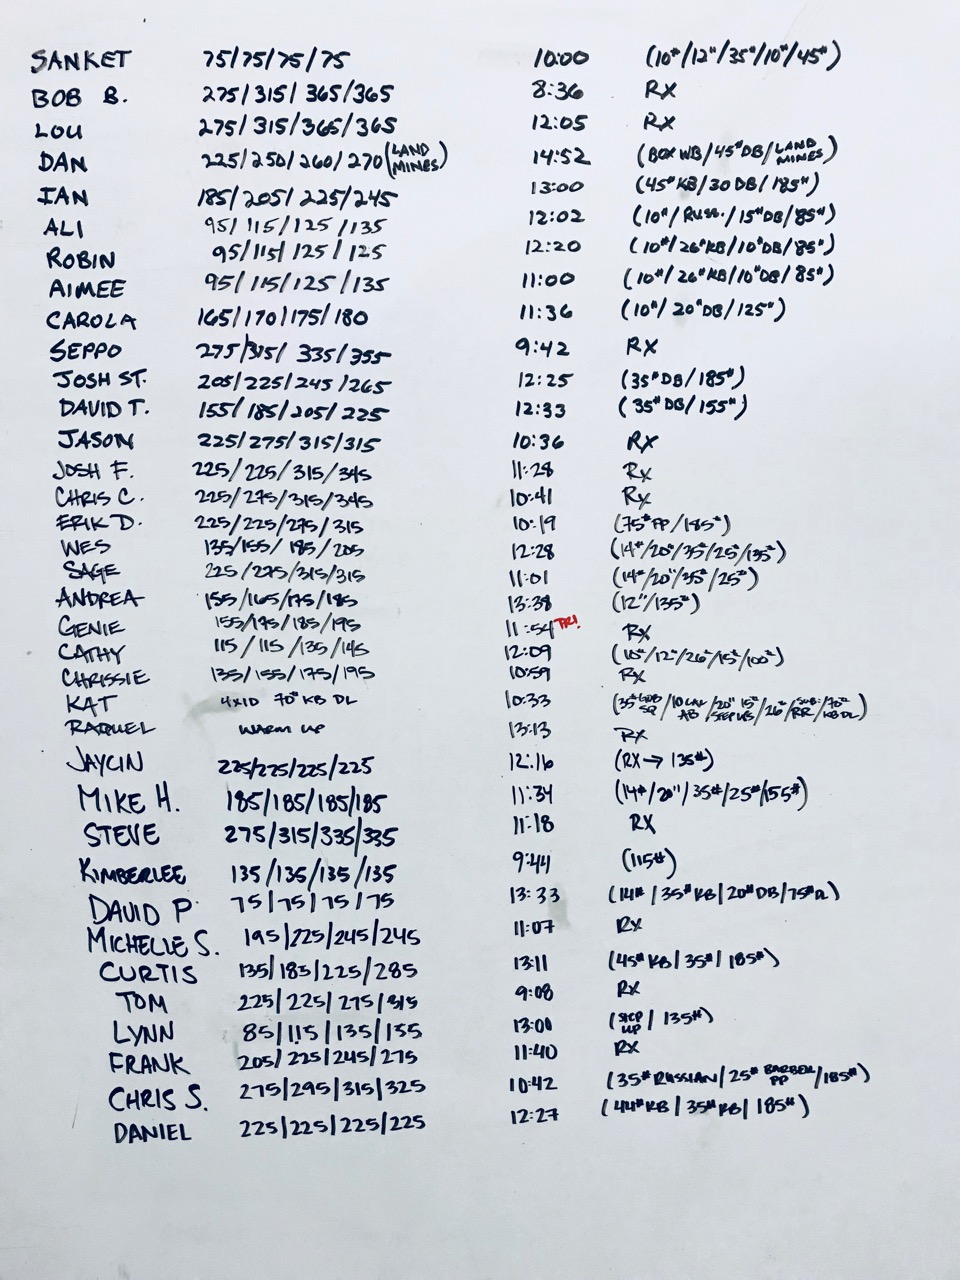 SANKET 75/75/75/75 10:00 (10#/12"/35#/10#/45#)
BOB B. 275/315/365/365 8:36 RX
LOU 275/315/365/365 12:05 RX
DAN 225/250/260/270 (LAND MINES) 14:52 (BOX WB/45#DB/LAND MINES)
IAN 185/205/225/245 13:00 (45#KB/30 DB/185#)
ALI 95/115/125/135 12:02 (10#/RUSS./15#DB/85#)
ROBIN 95/115/125/125 12:20 (10#/26#KB/10#DB/85#)
AIMEE 95/115/125/135 11:00 (10#/26#KB/10#DB/85#)
CAROLA 165/170/175/180 11:36 (10#/20#DB/125#)
SEPPO 275/315/335/355 9:42 RX
JOSH ST. 205/225/245/265 12:25 (35#DB/185#)
DAVID T. 155/185/205/225 12:33 (35#DB/155#)
JASON 225/275/315/315 10:36 RX
JOSH F. 225/225/315/345 11:28 RX
CHRIS C. 225/275/315/345 10:41 RX
ERIK D. 225/225/275/315 10:19 (75#PP/185#)
WES 135/155/185/205 12:28 (14#/20"/35#/25#/135#)
SAGE 225/275/315/315 11:01 (14#/20"/35#/25#)
ANDREA 155/165/175/185 13:38 (12"/135#)
GENIE 155/175/185/195 11:54 RX
CATHY 115/115/135/145 12:09 (10#/12"/26#/15#/100#)
CHRISSIE 135/155/175/195 10:59 RX
KAT 4x10 70# KB DL 10:33 (35# SQ/10 CAL AB/20" 15# STEP UPS/26#/SUB: RR/70# KB DL)
RAQUEL WARM UP 13:13 RX
JAYCIN 225/225/225/225 12:16 (RX→135#)
MIKE H. 185/185/185/185 11:34 (14#/20"/35#/25#/155#)
STEVE 275/315/335/335 11:18 RX
KIMBERLEE 135/135/135/135 9:44 (115#)
DAVID P. 75/75/75/75 13:33 (14#/35#KB/20#DB/75#DL)
MICHELLE S. 195/225/245/245 11:07 RX
CURTIS 135/185/225/285 13:11 (45#KB/35#/185#)
TOM 225/225/275/315 9:08 RX
LYNN 85/115/135/155 13:00 (STEP UP/135#)
FRANK 205/225/245/275 11:40 RX
CHRIS S. 275/295/315/325 10:42 (35# RUSSIAN/25# BARBELL PP/185#)
DANIEL 225/225/225/225 12:27 (44#KB/35#KB/185#)